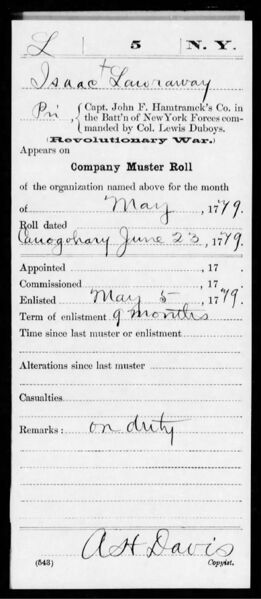 L 5 N. Y.
Isaac † Lawraway
Pri, { Capt. John F. Hamtramck's Co. in
the Batt'n of New York Forces com-
manded by Col. Lewis Duboys.
(Revolutionary War.)
Appears on
Company Muster Roll
of the organization named above for the month
of May, 1779.
Roll dated
Canogohary June 23, 1779.
Appointed , 17 .
Commissioned , 17 .
Enlisted May 5, 1779.
Term of enlistment 9 months
Time since last muster or enlistment
Alterations since last muster
Casualties
Remarks: on duty
A H Davis
(543) Copyist.